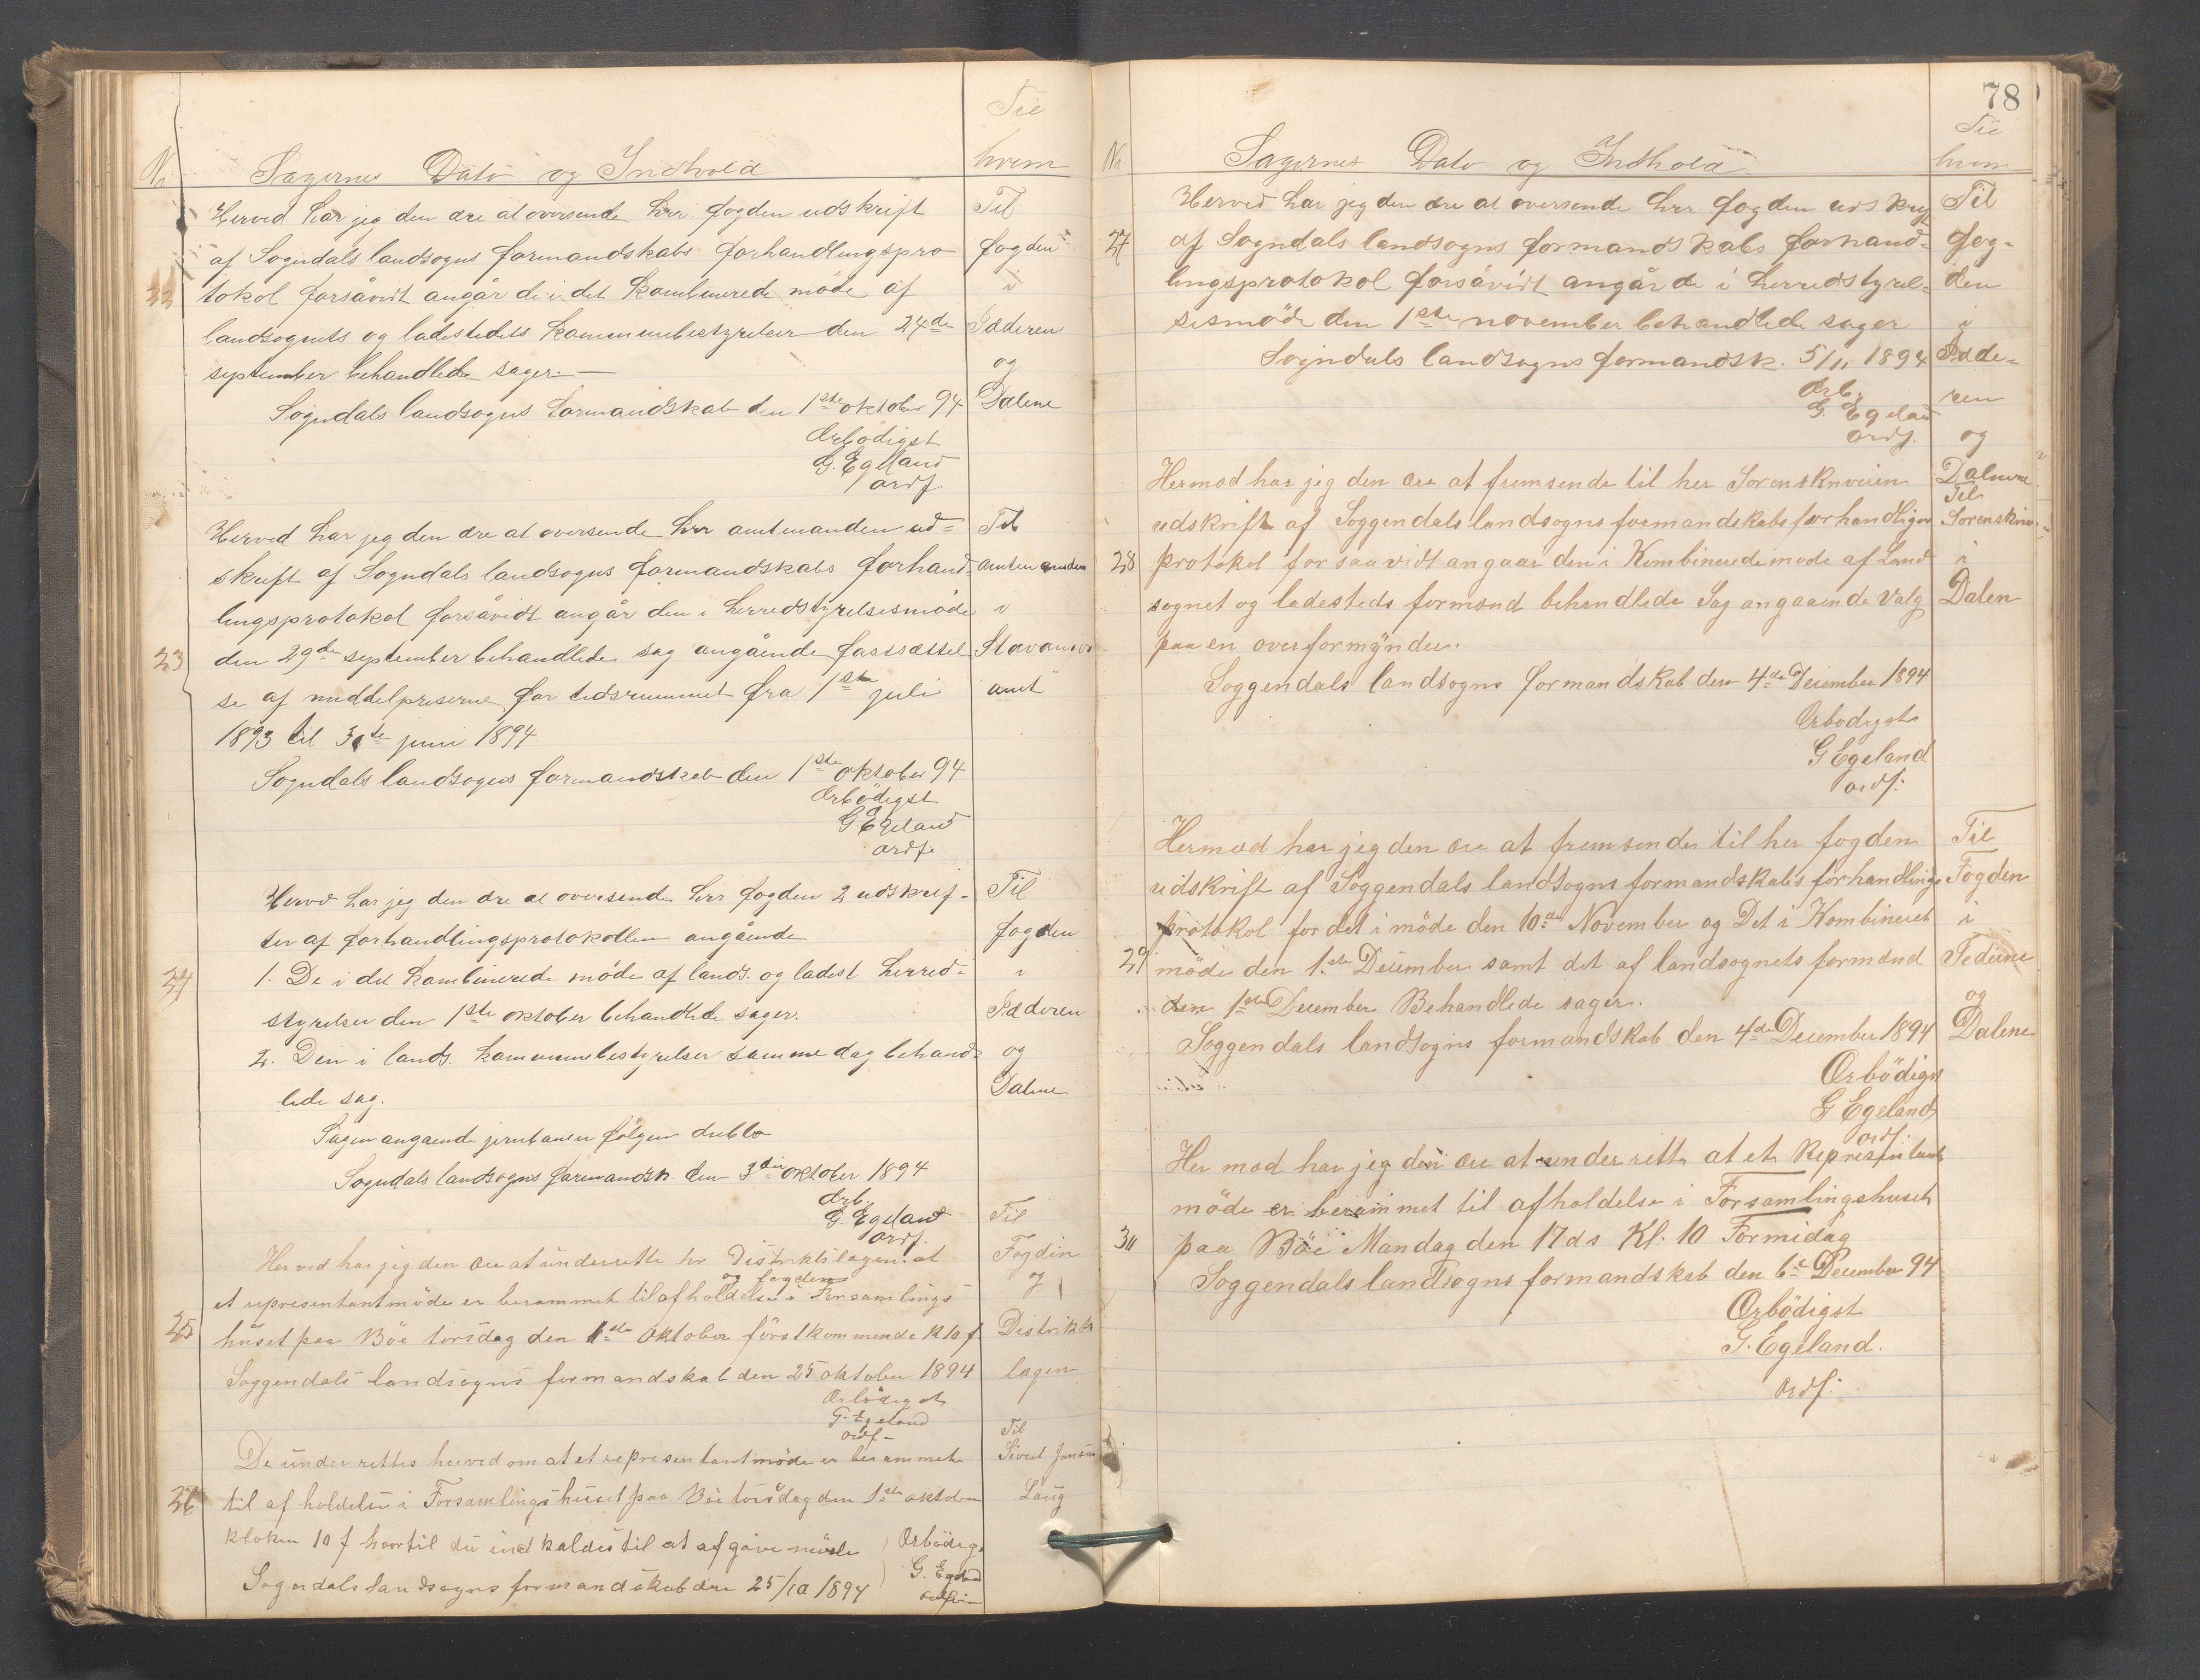 Til
Nr Sagernes Dato og Indhold hvem
Herved har jeg den ære at oversende hrr. fogden udskrift Til
af Sogndals landsogns formandskabs forhandlingspro- fogden
22 tokol forsåvidt angår de i det kombinerede möde af i
landsognets og ladestedets kommunebestyrelser den 24de Jæderen
september behandlede sager. — og
Sogndals landsogns formandskab den 1ste oktober 94 Dalene
Ærbødigst
G. Egeland
ordf.
Herved har jeg den ære at oversende hrr amtmanden ud= Til
skrift af Sogndals landsogns formandskabs forhand= amtmanden
lingsprotokol forsåvidt angår den i herredstyrelsesmöde i
23 den 29de september behandlede sag angående fastsættel Stavanger
se af middelpriserne for tidsrummet fra 1ste juli amt
1893 til 30te juni 1894.
Sogndals landsogns formandskab den 1ste oktober 94
Ærbödigst
G. Egeland
ordf.
Herved har jeg den ære at oversende hrr fogden 2 udskrif- Til
ter af forhandlingsprotokollen angående fogden
24 1. De i det kombinerede möde af lands. og ladest. herred- i
styrelser den 1ste oktober behandlede sager. Jæderen
2. Den i lands. kommunebestyrelser samme dag behand= og
lede sag. Dalene
Sagen angaende jernbanen fölger dublo
Sogndals landsogns formandsk. den 3die oktober 1894
Ærb.
G. Egeland
ordf.
Til
Herved har jeg den ære at underrette hr Distriktslægen at Fogden
og fogden
et representantmöde er berammet til afholdelse i Forsamlings og
25 huset paa Böe torsdag den 1ste Oktober förstkommende k 10 f Distrikts
Soggendals landsogns formandskab den 25 oktober 1894 lægen
Ærbödigst
G. Egeland
ordf-
Til
De underrettes herved om at et representantmöde er berammet Sivert Jansen
26 til afholdelse i Forsamlingshuset paa Böe torsdag den 1ste oktober Laug
kloken 10 f hvortil du indkaldes til at afgive möde Ærbödigs
Sogndals landsogns formandskab den 25/10 1894 G. Egeland
ordförer
78
Til
Nr Sagernes Dato og Indhold hvem
Herved har jeg den ære at oversende hrr fogden udskrif Til
27 af Sogndals landsogns formandskabs forhand= fog-
lingsprotokol forsåvidt angår de i herredstyrel= den
sesmöde den 1ste november behandlede sager i
Sogndals landsogns formandsk. 5/11 1894 Jæde=
Ærb. ren
G. Egeland
ordf. og
Hermed har jeg den ære at fremsende til her Sorenskriveren Dalene
Til
udskrift af Soggendals landsogns formandskabs forhandligs Sorenskriv
28 protokol for saavidt angaar den i Kombinerede mode af Land i
sognet og ladesteds formænd behandlede Sag angaaende valg Dalen
paa en overformÿnder.
Soggendals landsogns formandskab den 4de December 1894
Ærbodigst
G Egeland
ordf:
Hermed har jeg den ære at fremsende til her fogden Til
udskrift af Soggendals landsogns formandskabs forhandlings Fogden
protokol for det i möde den 10de November og Det i Kombineret i
29 möde den 1ste December samt det af landsognets formænd Jederene
den 1ste December Behandlede sager. og
Soggendals landsogns formandskab den 4de December 1894 Dalene
Ærbödigst
G Egeland
ordf:
Hermed har jeg den ære at underrette at et Representants
möde er berammet til afholdelse i Forsamlingshuset
30 paa Böe Mandag den 17 ds Kl: 10 Formidag
Soggendals landsogns formandskab den 6te December 94
Ærbödigst
G. Egeland.
ordf: